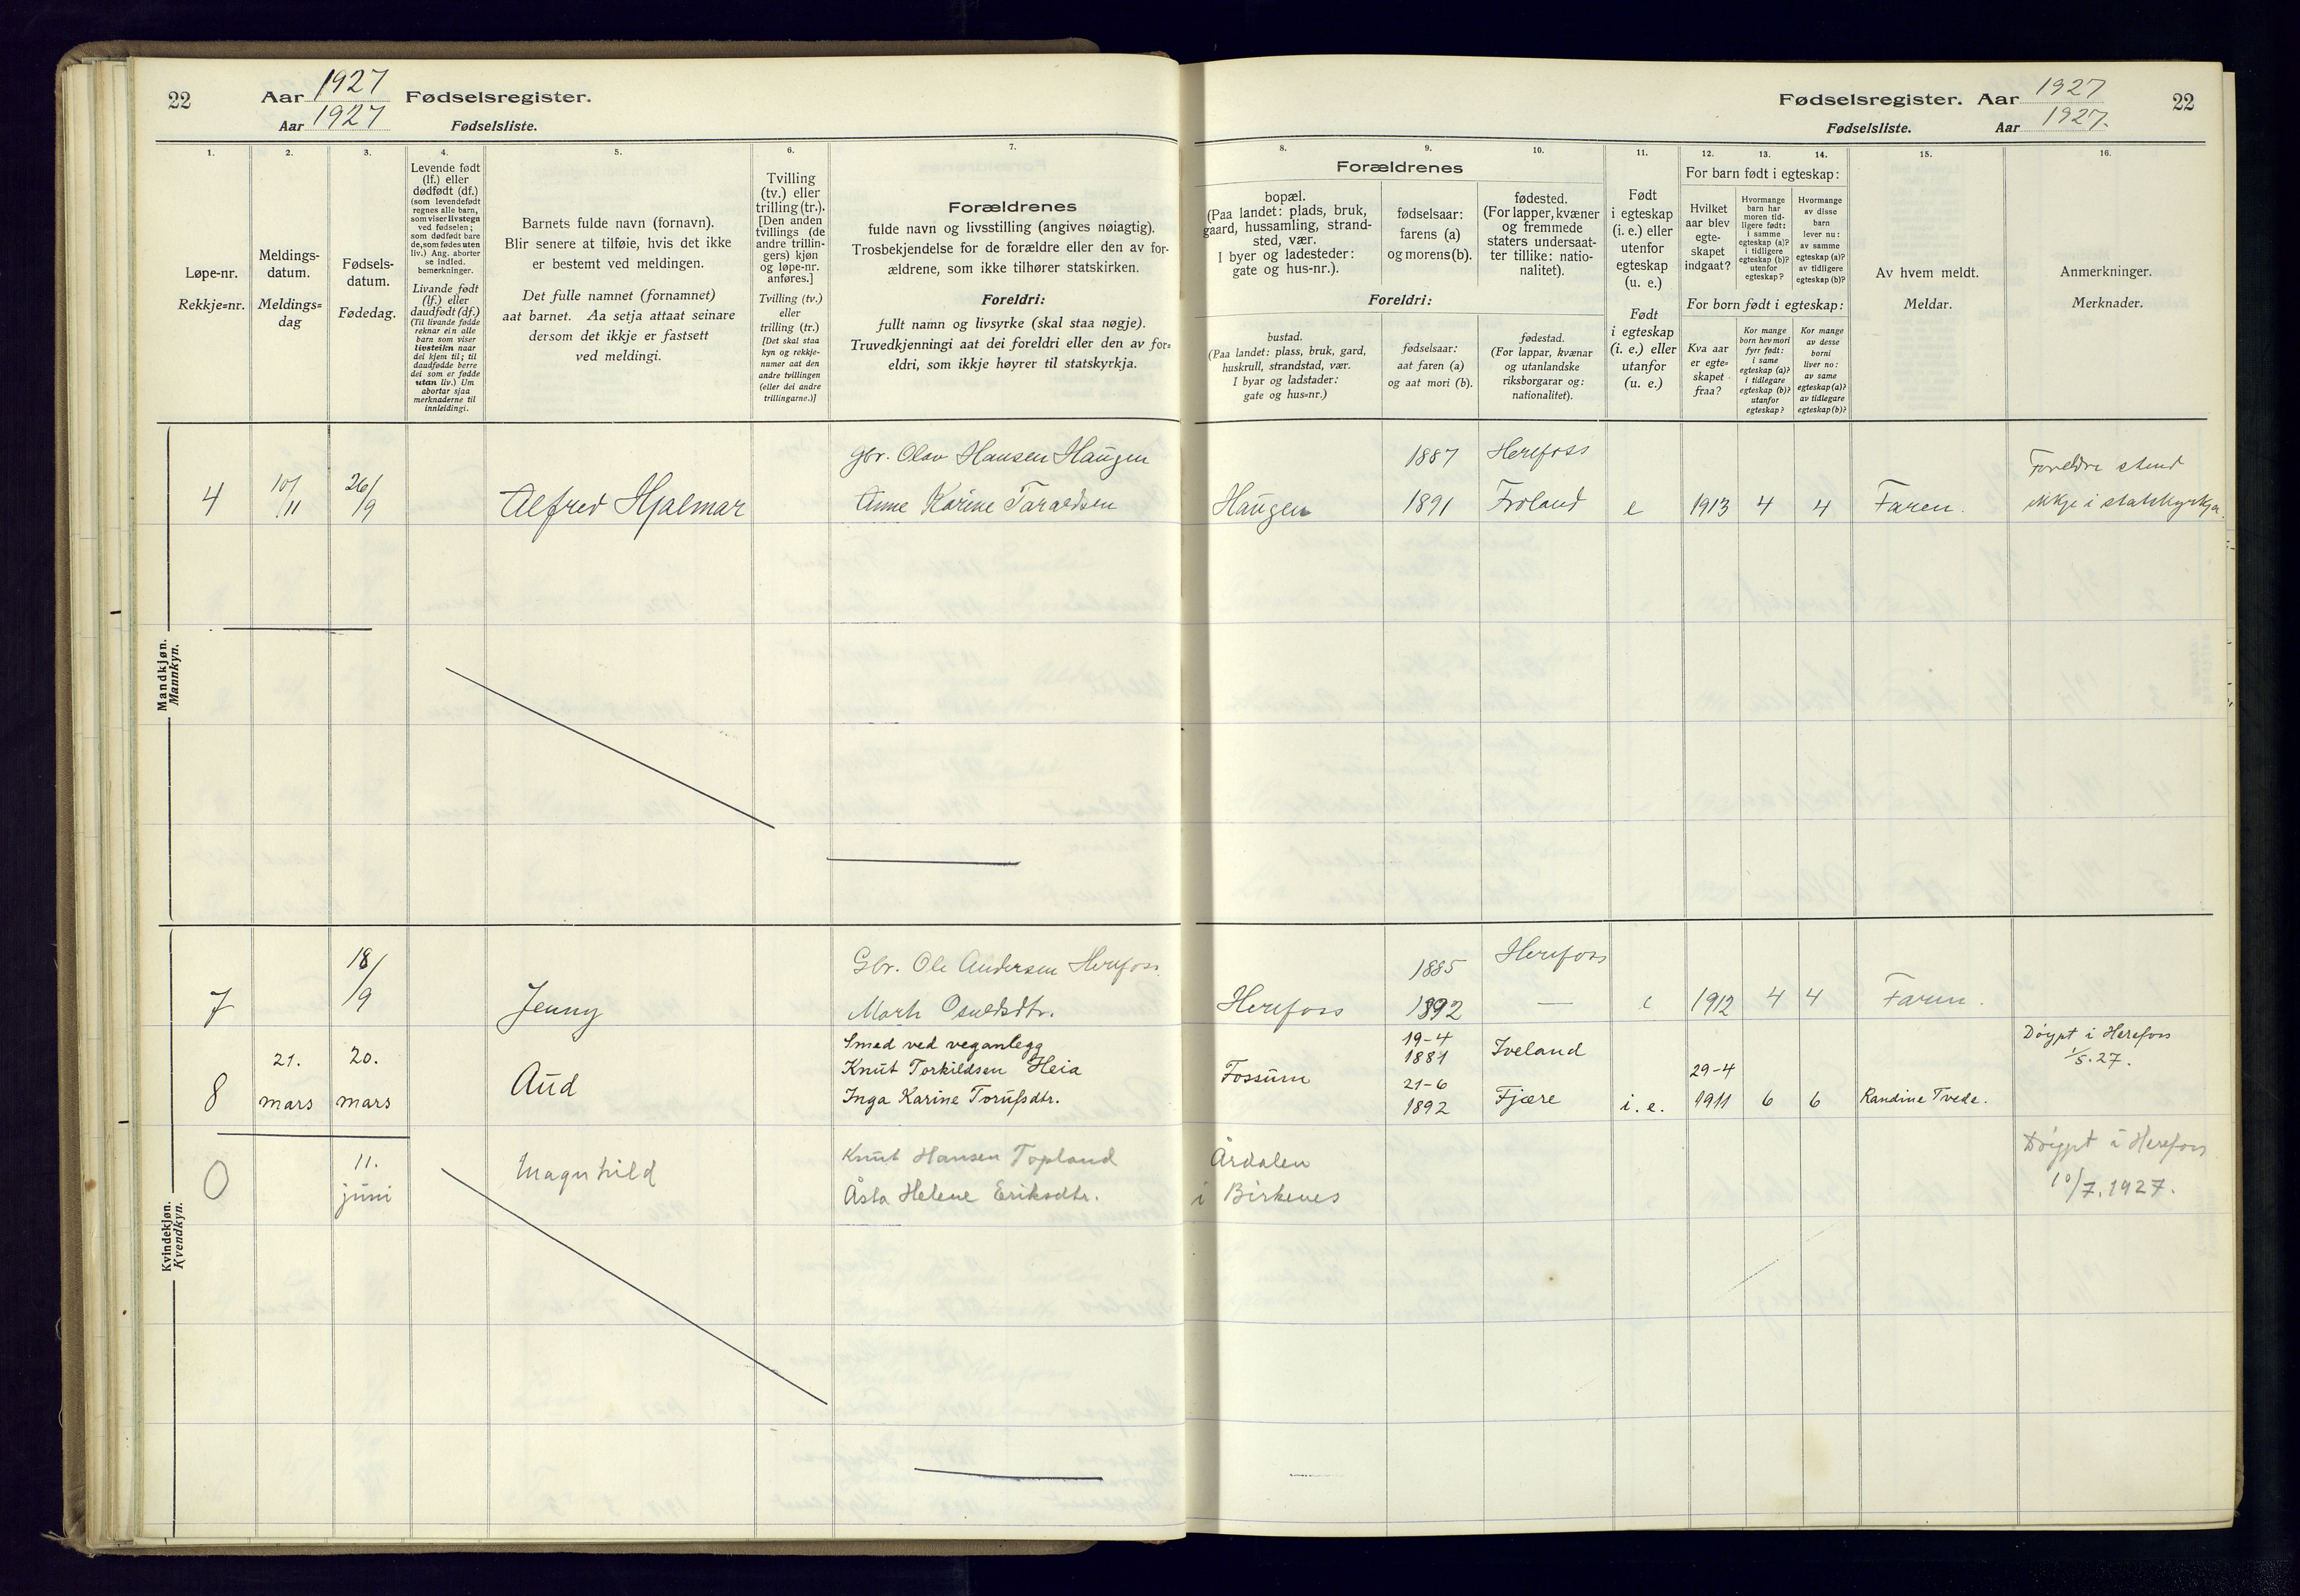 22 Aar 1927 Fødselsregister.
Aar 1927 Fødselsliste.
Fødselsregister. Aar 1927 22
Fødselsliste. Aar 1927.
1. 2. 3. 4. 5. 6. 7.
Løpe-nr.
Rekkje=nr.
Meldings-
datum.
Meldings=
dag
Fødsels-
datum.
Fødedag.
Levende født
(lf.) eller
dødfødt (df.)
(som levendefødt
regnes alle barn,
som viser livstegn
ved fødselen;
som dødfødt bare
de, som fødes uten
liv.) Ang. aborter
se indled.
bemerkninger.
Livande født
(lf.) eller
daudfødt (df.)
(Til livande fødde
reknar ein alle
barn som viser
livsteikn naar
dei kjem til; til
daudfødde berre
dei som er fødde
utan liv.) Um
abortar sjaa
merknaderne til
innleidingi.
Barnets fulde navn (fornavn).
Blir senere at tilføie, hvis det ikke
er bestemt ved meldingen.
Det fulle namnet (fornamnet)
aat barnet. Aa setja attaat seinare
dersom det ikkje er fastsett
ved meldingi.
Tvilling
(tv.) eller
trilling (tr.).
[Den anden
tvillings (de
andre trillin-
gers) kjøn
og løpe-nr.
anføres.]
Tvilling (tv.)
eller
trilling (tr.)
[Det skal staa
kyn og rekkje-
numer aat den
andre tvillingen
(eller dei andre
trillingarne.)]
Forældrenes
fulde navn og livsstilling (angives nøiagtig).
Trosbekjendelse for de forældre eller den av for-
ældrene, som ikke tilhører statskirken.
Foreldri:
fullt namn og livsyrke (skal staa nøgje).
Truvedkjenningi aat dei foreldri eller den av for=
eldri, som ikkje høyrer til statskyrkja.
8. 9. 10. 11. 12. 13. 14. 15. 16.
Forældrenes
bopæl.
(Paa landet: plads, bruk,
gaard, hussamling, strand-
sted, vær.
I byer og ladesteder:
gate og hus-nr.).
fødselsaar:
farens (a)
og morens (b).
fødested.
(For lapper, kvæner
og fremmede
staters undersaat-
ter tillike: natio-
nalitet).
Foreldri:
bustad.
(Paa landet: plass, bruk, gard,
huskrull, strandstad, vær.
I byar og ladstader:
gate og hus=nr.)
fødselsaar:
aat faren (a)
og aat mori (b).
fødestad.
(For lappar, kvænar
og utanlandske
riksborgarar og:
nationalitet).
Født
i egteskap
(i. e.) eller
utenfor
egteskap
(u. e.)
Født
i egteskap
(i. e.) eller
utanfor
(u. e.)
For barn født i egteskap:
Hvilket
aar blev
egte-
skapet
indgaat?
Hvormange
barn har
moren tid-
ligere født:
i samme
egteskap (a)?
i tidligere
egteskap (b)?
utenfor
egteskap?
Hvormange
av disse
barn
lever nu:
av samme
egteskap (a)?
av tidligere
egteskap (b)?
For born født i egteskap:
Kva aar
er egte-
skapet
fraa?
Kor mange
born hev mori
fyrr født:
i same
egteskap (a)?
i tidlegare
egteskap (b)?
utanfor
egteskap?
Kor mange
av desse
borni
liver no:
av same
egteskap (a)?
av tidlegare
egteskap (b)?
Av hvem meldt.
Meldar.
Anmerkninger.
Merknader.
Mandkjøn.
Mannkyn.
4 10/11 26/9 Alfred Hjalmar
gbr. Olav Hansen Haugen
Anne Karine Taraldsen
Haugen
1887 Herefoss
1891 Froland e 1913 4 4 Faren.
Foreldre stend
ikkje i statskyrkja.
Kvindekjøn.
Kvendkyn.
7 18/9 Jenny
Gbr. Ole Andersen Herefoss.
Marth Osuldsdtr.
Herefoss
1885 Herefoss
1892 — e 1912 4 4 Faren.
8 21. mars 20. mars Aud
Smed ved veganlegg
Knut Torkildsen Heia
Inga Karine Torufsdtr.
Fossum
19-4
1881 Iveland
21-6
1892 Fjære i. e.
29-4
1911 6 6 Randine Tvede.
Døypt i Herefoss
1/5.27.
0 11. juni Magnhild
Knut Hansen Topland
Åsta Helene Eriksdtr.
Årdalen
i Birkenes
Døypt i Herefoss
10/7.1927.